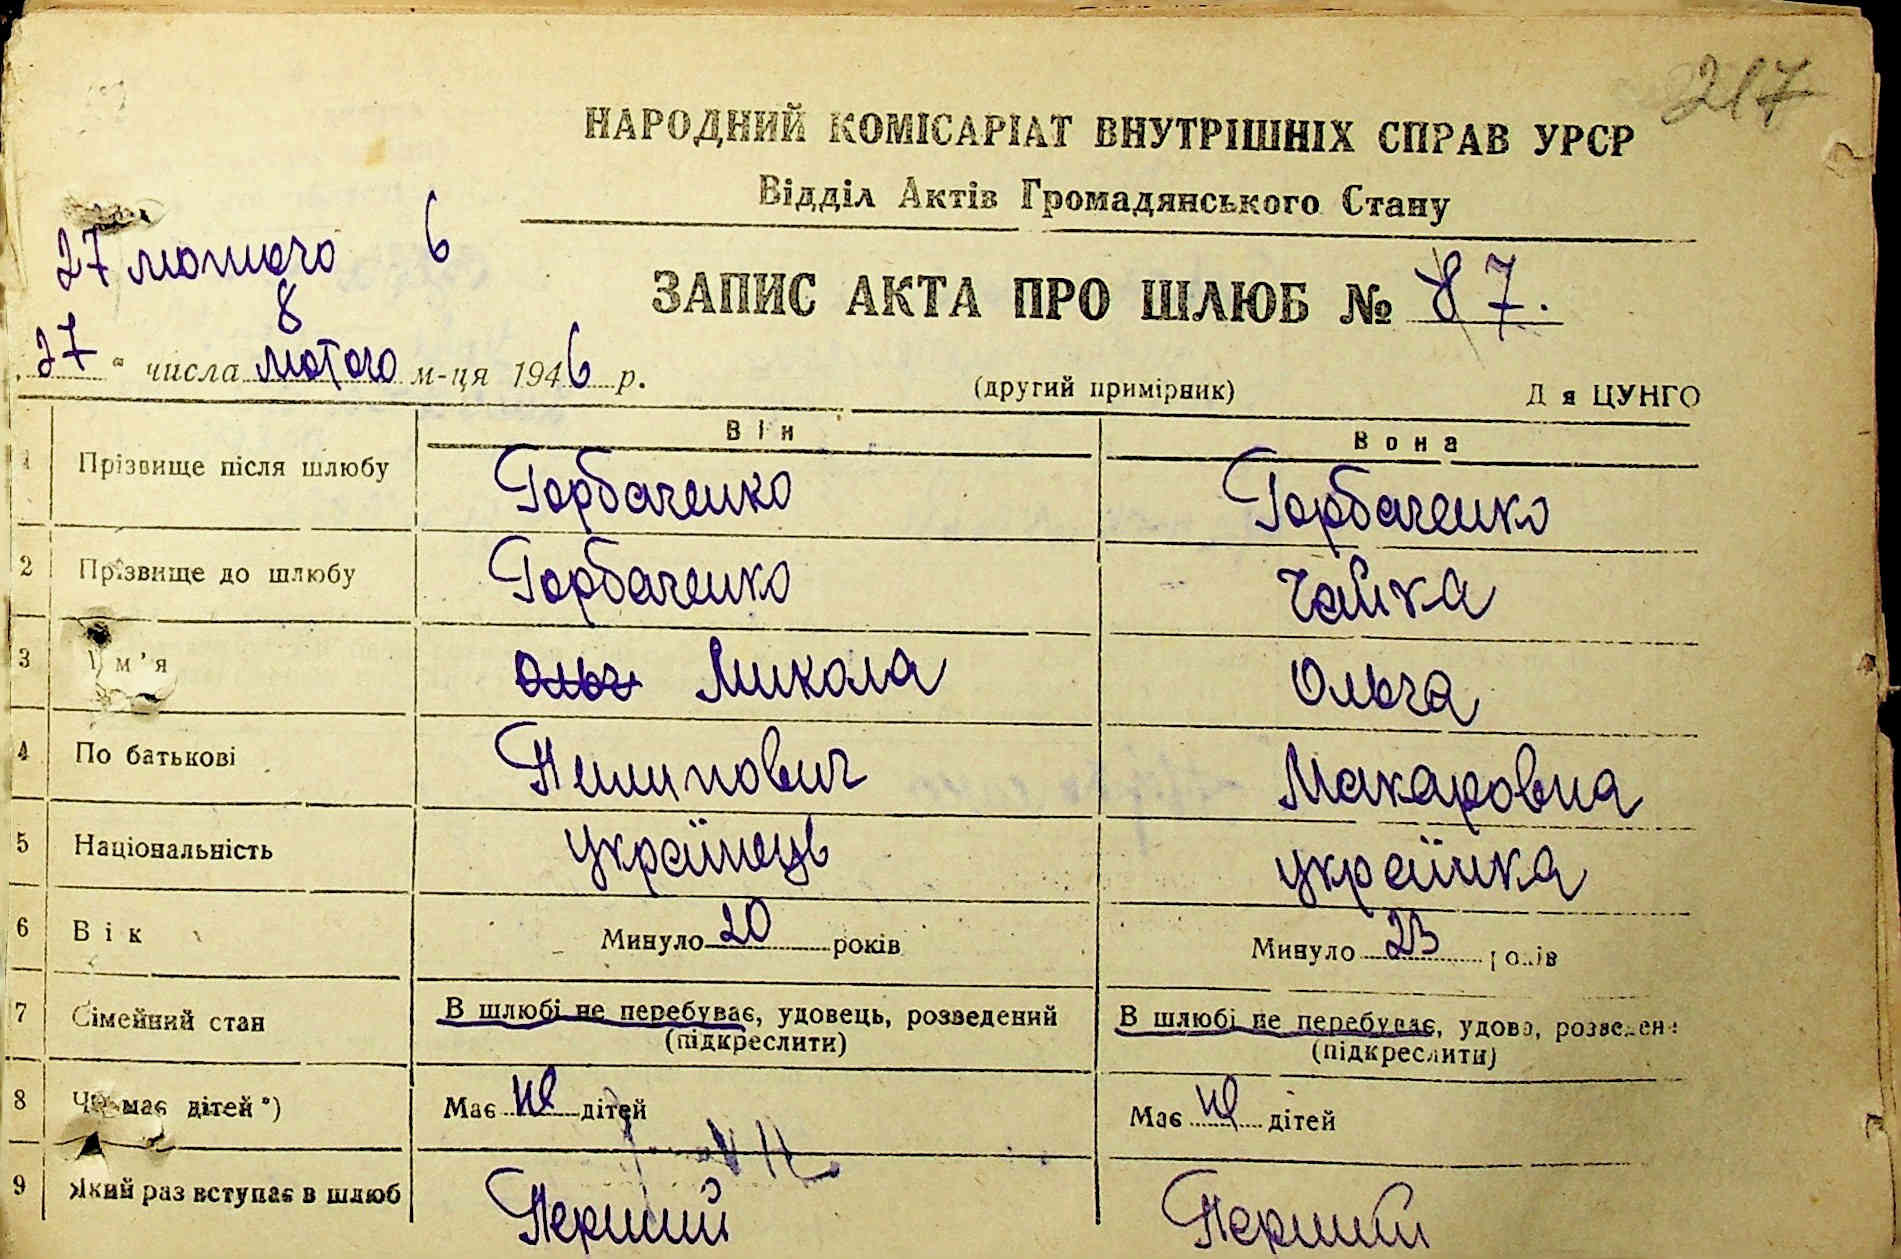 217
НАРОДНИЙ КОМІСАРІАТ ВНУТРІШНІХ СПРАВ УРСР
Відділ Актів Громадянського Стану
27 лютого 6
8
ЗАПИС АКТА ПРО ШЛЮБ № 87.
„27“ числа лютого м-ця 1946 р.
(другий примірник) Д я ЦУНГО
Він Вона
1 Прізвище після шлюбу Горбаченко Горбаченко
2 Прізвище до шлюбу Горбаченко Чайка
3 Ім'я Ольг Микола Ольга
4 По батькові Пилипович Макаровна
5 Національність українець українка
6 Вік Минуло 20 років Минуло 23 років
7 Сімейний стан В шлюбі не перебуває, удовець, розведений В шлюбі не перебуває, удова, розведена
(підкреслити) (підкреслити)
8 Чи має дітей*) Має не дітей Має не дітей
9 Який раз вступає в шлюб Перший Перший